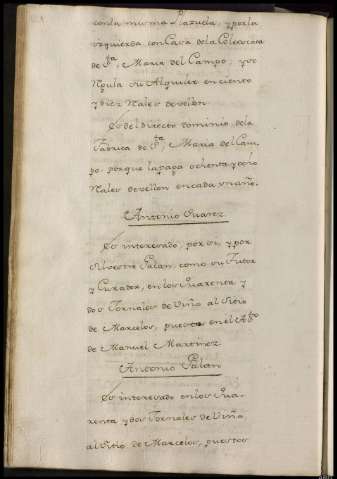 con la misma Plazuela, y por la
izquierda con Casa dela Colegiata
de Sta. Maria del Campo, y se
Regula su Alquiler en ciento
y diez Rales de vellon
Es del directo dominio dela
Fabrica de Sta. Maria del Cam-
po, porque la paga ochenta y ocho
Rales de vellon en cada un año.
Antonio Suarez
Es interesado, por si, y por
Silvestre Galan, como su Tutor
y Curador, en los Quarenta y
dos Jornales de Viña al Sitio
de Marcelos, puestos en el Asto
de Manuel Martinez
Antonio Galan
Es interesado en los Qua-
renta y dos Jornales de Viña
al Sitio de Marcelos, puestos